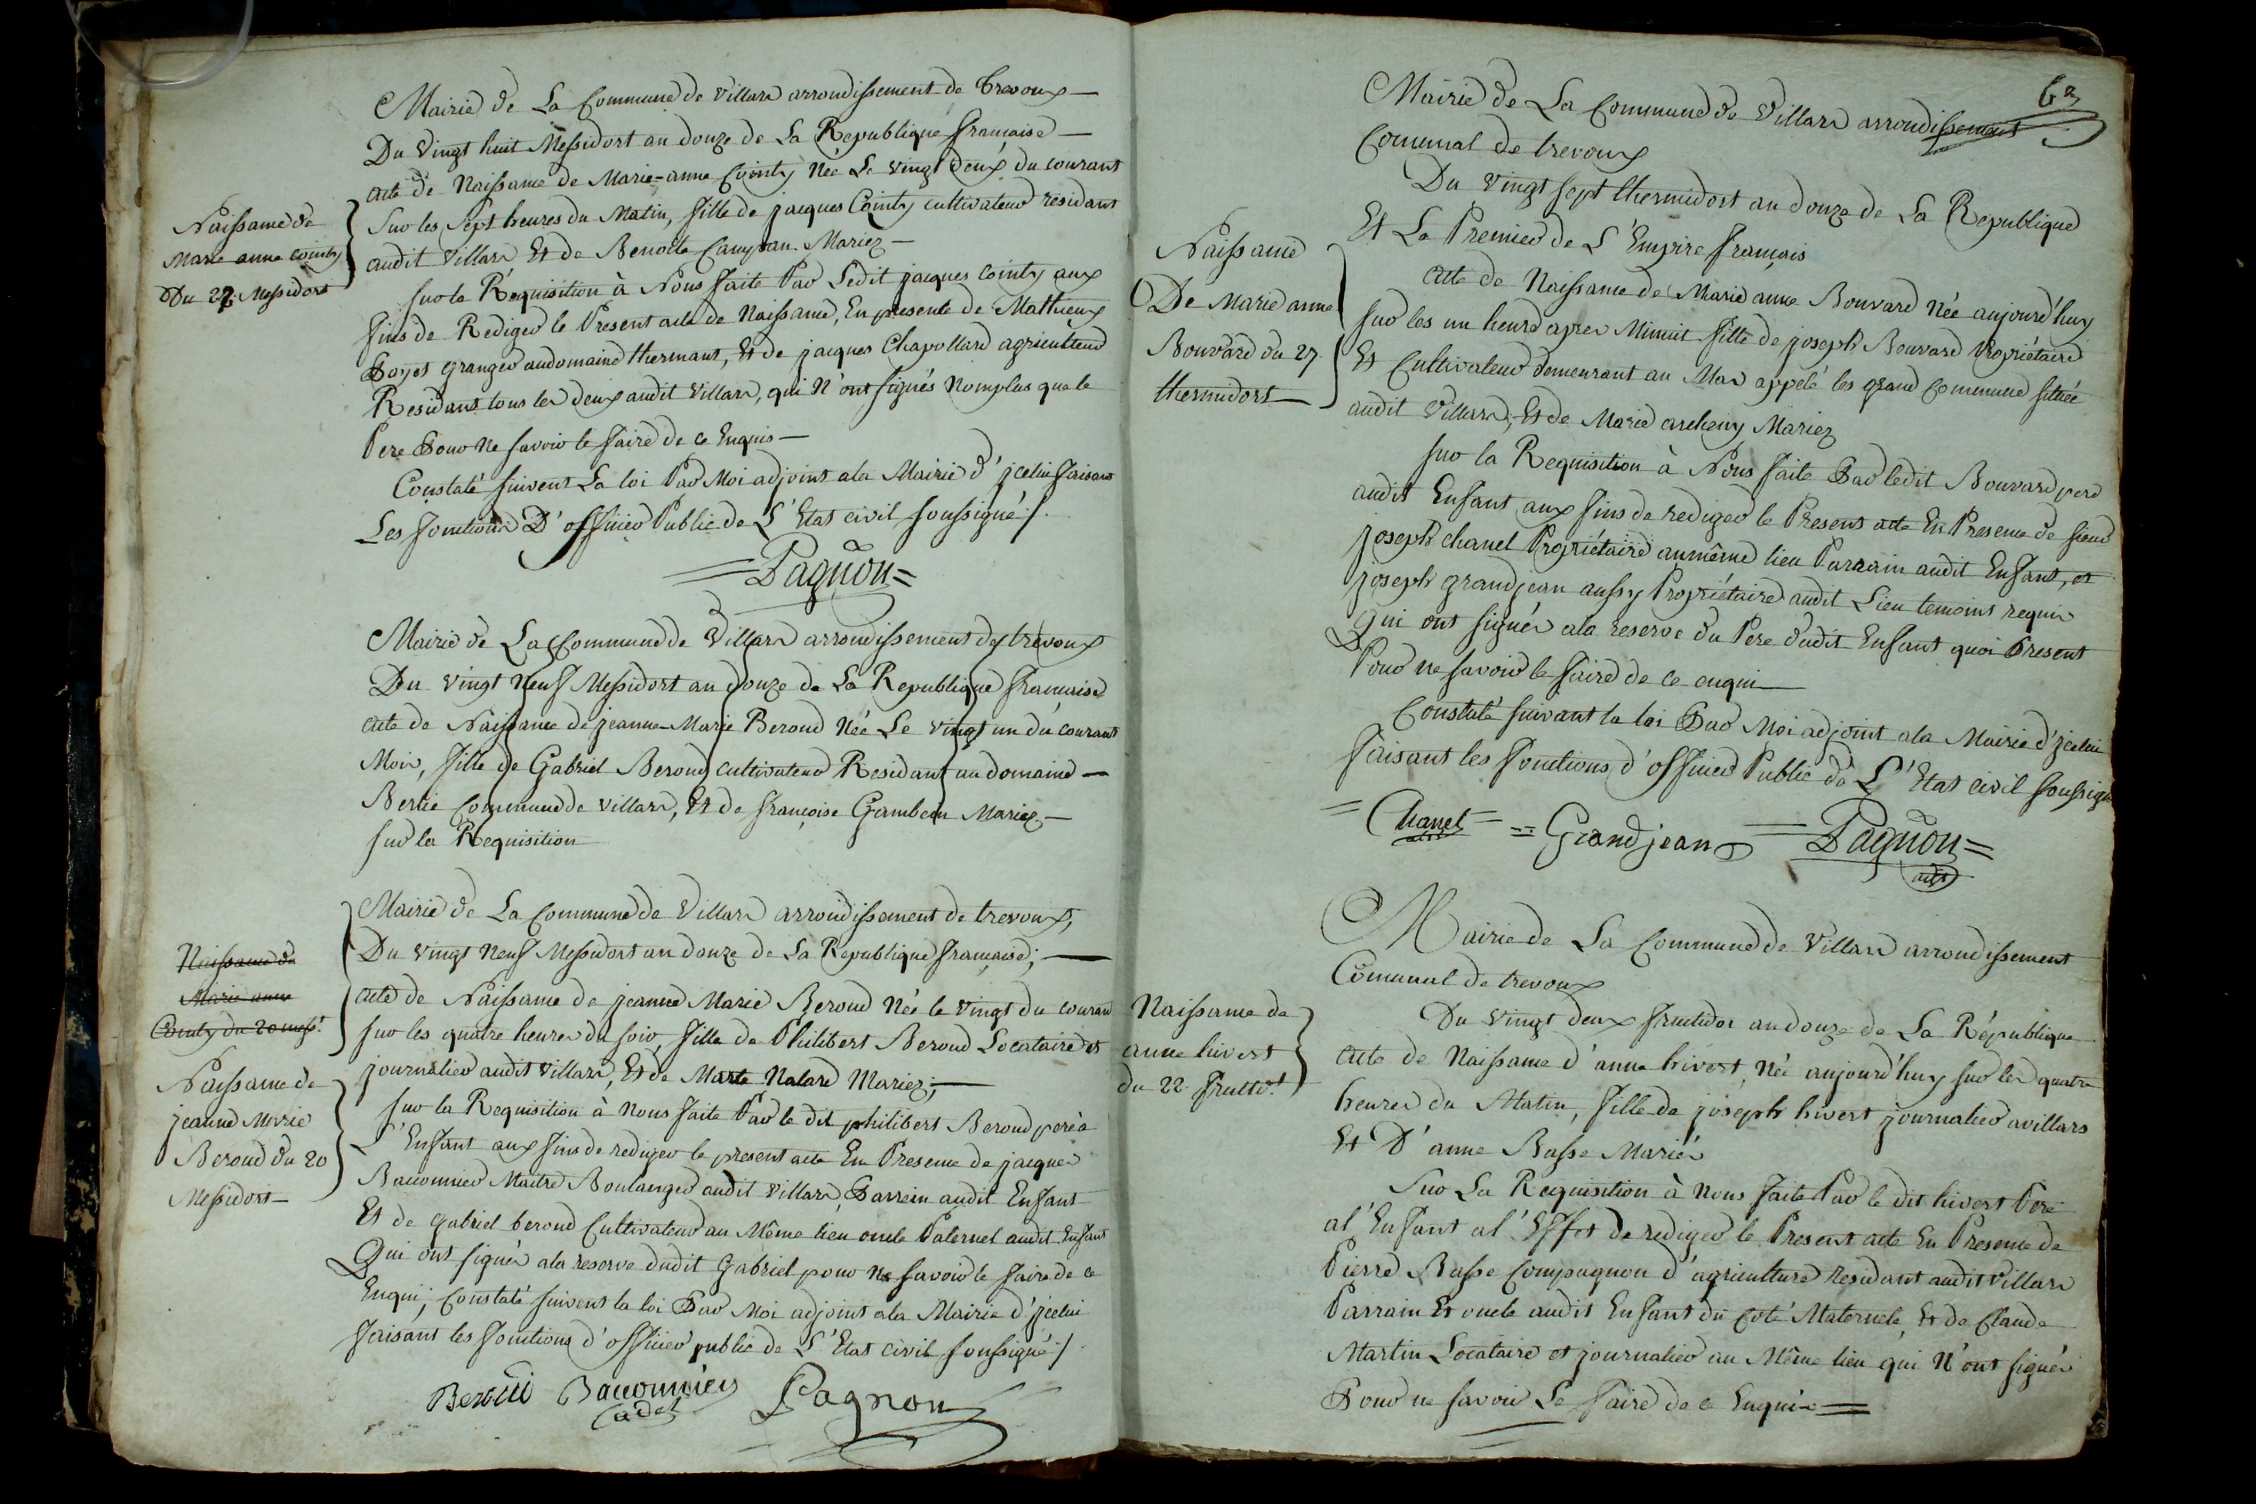 Mairie de La Commune de Villars arrondissement de trevoux
Du vingt huit Messidort an douze de La Republique française
acte de Naissance de Marie-anne Cointy Née Le vingt deux du courant
Sur les sept heures du Matin, fille de jacques Cointy cultivateur residant
audit Villars Et de Benoîte Mariez
Naissance de
Marie anne Cointy
Du 22 Messidort
sur la Réquisition à Nous faite Par Ledit jacques Cointy aux
fins de Rediger le Present acte de Naissance, En presente de Mathieux
granger audomaine thermant, Et de jacques Chapollard agriculteur
Residants tous les deux audit Villars, qui N'ont signés Nomplus que le
Pere Pour Ne savoir le faire de ce Enquis
Constaté suivent La loi Par Moi adjoint ala Mairie d'jcelui faisant
Les fonctions D'officier Public de L'Etat civil soussigné ./.
= Pagnon =
Mairie de La Commune de Villars arrondissement de trevoux
Du vingt Neuf Messidort an douze de La Republique française
acte de Naissance de jeanne-Marie Beroud Née Le vingt un du courant
Mois, fille de Gabriel Beroud cultivateur Residant au domaine
Bertie Commune de Villars, Et de françoise Gambeau Mariez
sur la Requisition
Mairie de La Commune de Villars arrondissement de trevoux,
Du vingt Neuf Messidort an douze de La Republique française;
acte de Naissance de jeanne Marie Beroud Née le vingt du courant
sur les quatre heures du soir, fille de Philibert Beroud Locataire et
journalier audit Villars, Et de Marte Nalard Mariez;
Naissance de
Marie anne
Cointy du 20 mess.t
Naissance de
jeanne Marie
Beroud du 20
Messidort
sur la Requisition à Nous faite Par le dit philibert Beroud pere à
L'Enfant aux fins de rediger le present acte En Presence de jacques
Baconnier Maitre Boulanger audit Villars, Parrein audit Enfant
Et de gabriel beroud Cultivateur au Même lieu oncle Paternel audit Enfant
Qui ont signés ala reserve dudit Gabriel pour Ne savoir le faire de ce
Enquis; Constaté suivent la loi Par Moi adjoint ala Mairie d'jcelui
faisant les fonctions d'officier public de L'Etat civil soussigné ./.
Beroud Baconnier Pagnon
Cadet
62
Mairie de La Commune de Villars arrondissement
Comunal de trevoux
Du vingt sept thermidort an douze de La Republique
Et La Premier de L'Empire français
Naissance
De Marie anne
Bouvard du 27
thermidort
acte de Naissance de Marie anne Bouvard Née aujourd'huy
sur les un heure apres Minuit fille de joseph Bouvard Propriétaire
Et Cultivateur demeurant au Mas appelé les grand Commune située
audit Villars, Et de Marie archeny Mariez
sur la Requisition à Nous faite Par ledit Bouvard pere
audit Enfant aux fins de rediger le Present acte En Presence de sieur
joseph Chanel Propriétaire au même lieu Parrain audit Enfant, et
joseph grandjean aussy Propriétaire audit Lieu temoins requis
Qui ont signés ala reserve du Pere dudit Enfant quoi Present
Pour ne savoir le faire de ce enquis
Constaté suivant la loi Par Moi adjoint ala Mairie d'jcelui
faisant les fonctions d'officier Public de L'Etat civil soussigné
= Chanel = = Grandjean = Pagnon =
adjt
Mairie de La Commune de Villars arrondissement
Comunal de trevoux
Du vingt deux fructidor an douze de La République
Naissance de
anne hivert
du 22 fructi.t
acte de Naissance d'anne hivert, Née aujourd'huy sur les quatre
heures du Matin, fille de joseph hivert journalier avillars
Et D'anne Basse Mariés
Sur La Requisition à Nous faite Par le dit hivert Pere
al'Enfant al'Effet de rediger le Present acte En Presence de
Pierre Basse Compagnon d'agriculture residant audit Villars
Parrain Et oncle audit Enfant du Coté Maternele, Et de Claude
Martin Locataire et journalier au Même lieu qui N'ont signés
Pour ne savoir Le faire de ce Enquis